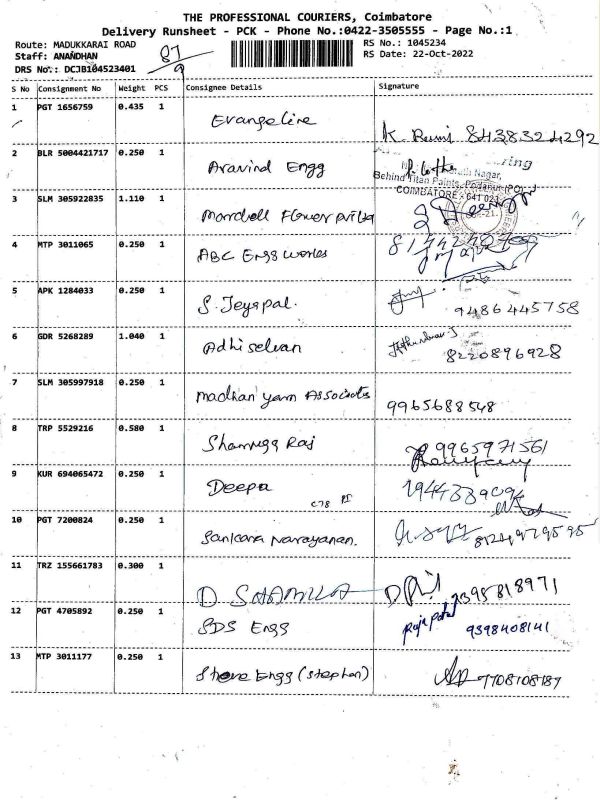 THE PROFESSIONAL COURIERS, Coimbatore
Delivery Runsheet - PCK - Phone No.:0422-3505555 - Page No.:1
Route: MADUKKARAI ROAD
Staff: ANANDHAN
DRS No.: DCJB104523401
87/9
RS No.: 1045234
RS Date: 22-Oct-2022
S No Consignment No Weight PCS Consignee Details Signature
1 PGT 1656759 0.435 1 Evangeline K. 8438324292
2 BLR 5004421717 0.250 1 Aravind Engg
Nagar,
Behind Titan Paints, Podanur (PO),
COIMBATORE - 641 023
3 SLM 305922835 1.110 1
4 MTP 3011065 0.250 1 ABC Engg works
5 APK 1284033 0.250 1 S. Jeyapal. 9486445758
6 GDR 5268289 1.040 1 Adhiselvan 8220896928
7 SLM 305997918 0.250 1 Madhan yarn Associates 9965688548
8 TRP 5529216 0.580 1 Shanmuga Raj 9965971561
9 KUR 694065472 0.250 1 Deepa
10 PGT 7200824 0.250 1 Sankara Narayanan.
11 TRZ 155661783 0.300 1 D SHARMILA 7395818971
12 PGT 4705892 0.250 1 SDS Engg 9398408141
13 MTP 3011177 0.250 1 Steve Engg (Stephen) 7708108187